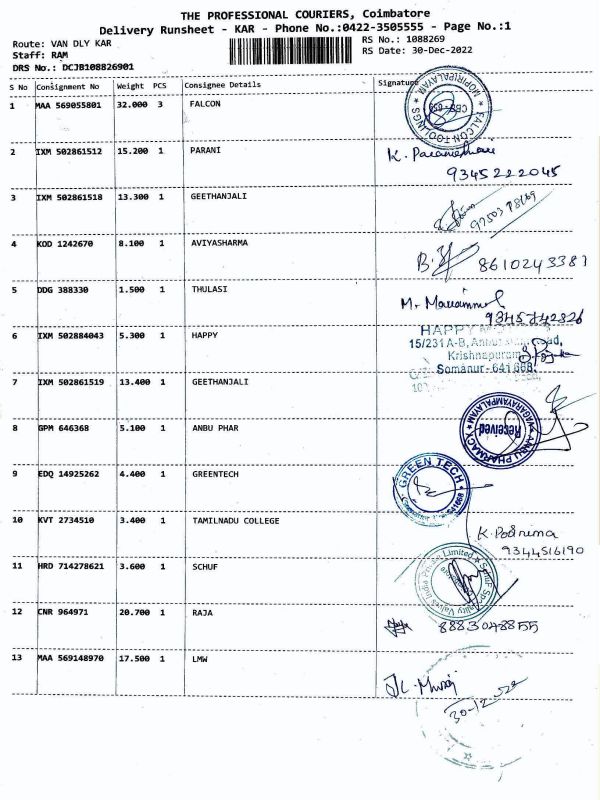 THE PROFESSIONAL COURIERS, Coimbatore
Delivery Runsheet - KAR - Phone No.:0422-3505555 - Page No.:1
Route: VAN DLY KAR
RS No.: 1088269
Staff: RAM
RS Date: 30-Dec-2022
DRS No.: DCJB108826901
S No Consignment No Weight PCS Consignee Details Signature
1 MAA 569055801 32.000 3 FALCON
FALCON TOOLINGS MOPIRIPALAYAM
2 IXM 502861512 15.200 1 PARANI
K.
9345222045
3 IXM 502861518 13.300 1 GEETHANJALI
4 KOD 1242670 8.100 1 AVIYASHARMA
B. 8610243383
5 DDG 388330 1.500 1 THULASI
M.
6 IXM 502884043 5.300 1 HAPPY
HAPPY
15/231 A-B,
Krishnapuram
Somanur - 641 668.
7 IXM 502861519 13.400 1 GEETHANJALI
8 GPM 646368 5.100 1 ANBU PHAR
ANBU PHARMACY
Received
9 EDQ 14925262 4.400 1 GREENTECH
GREEN TECH
641668
10 KVT 2734510 3.400 1 TAMILNADU COLLEGE
K.
9344516190
11 HRD 714278621 3.600 1 SCHUF
Schuf Valves India Private Limited
12 CNR 964971 20.700 1 RAJA
8883048855
13 MAA 569148970 17.500 1 LMW
30-12-